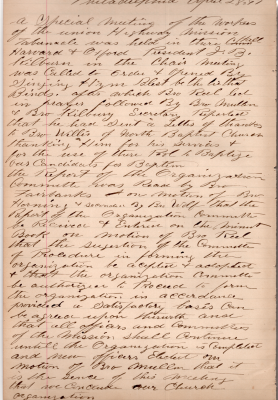 Philadelphia
A Special Meeting of the Workers
of the union Highway Mission
Tabernacle was held in their
Harvard & Oxford President
Kilburn in the Chair Meeting
was Called to Order & Opened By
Singing Hymn Blest be the tie that
Binds after which Bro Reid led
in prayer followed By Bro Mullen
& Bro Kilburn Secretary Reported
that he had Sent a letter of thanks
to Bro Willis of North Baptist Church
thanking Him for his Services &
for the use of there to Baptize
our Candidates for Baptism
the Report of the Organization
Committe was Read by Bro
Fairbanks & on Motion of Bro
Horning & second By Bro Wolf that the
report of the Organization Committe
be Received & Entered on the Minut
Book on Motion of Bro Reid
that the sugestion of the Committe
of Procedure in forming the
organization be acpted & adopted
& that the organization Committe
be authorized to Proceed to form
the organization in accordence
provided a Satisfactory basis Can
be agreed upon therwith and
that all officers and Committies
of the Mission shall Continue
untill the Organization is Completed
and new officers Elected on
Motion of Bro Mullen that it
is the Sence of this Meeting
that we our Church
organization